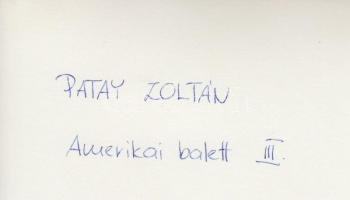 PATAY ZOLTÁN
Amerikai balett III.